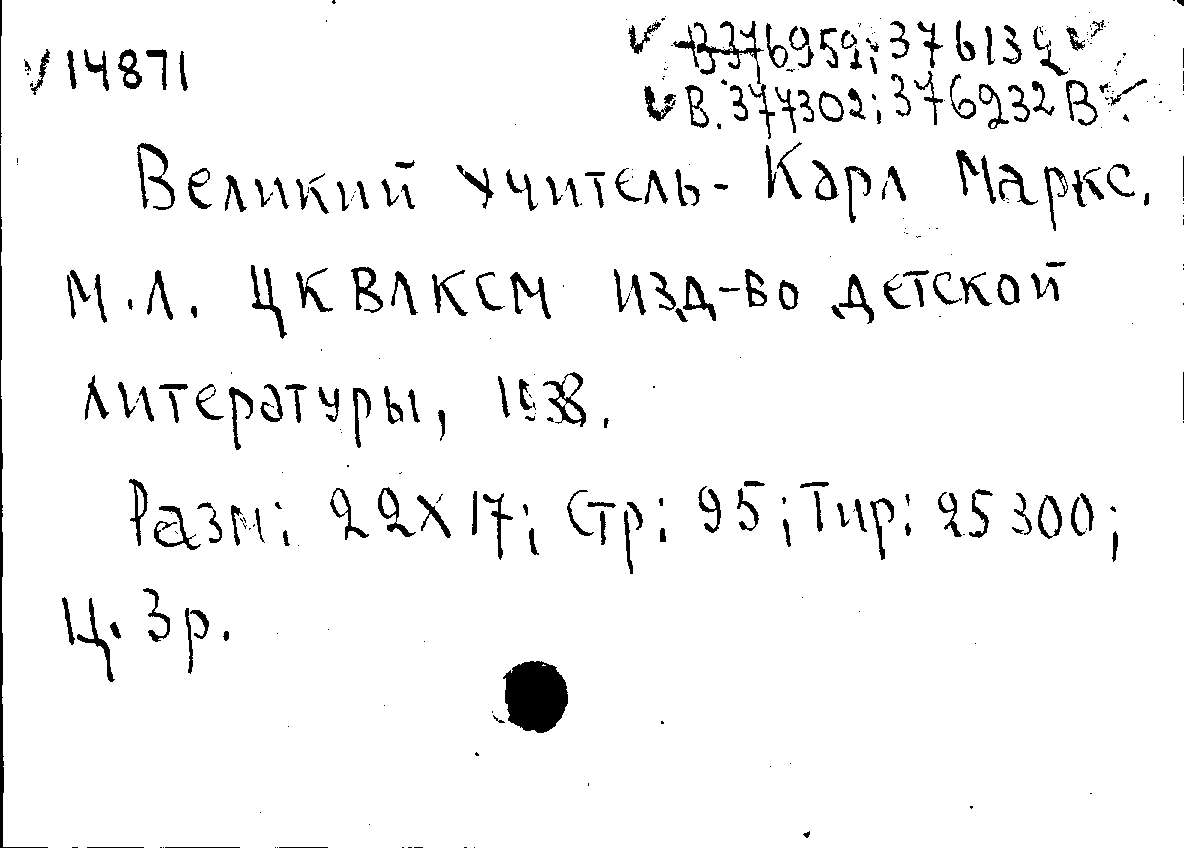 14871
В376959; 376132
В. 377302; 376932 В.
Великий учитель - Карл Маркс.
М.Л. ЦК ВЛКСМ изд-во детской
литературы, 1938.
Разм: 22х17; Стр: 95; Тир: 25300;
Ц. 3р.